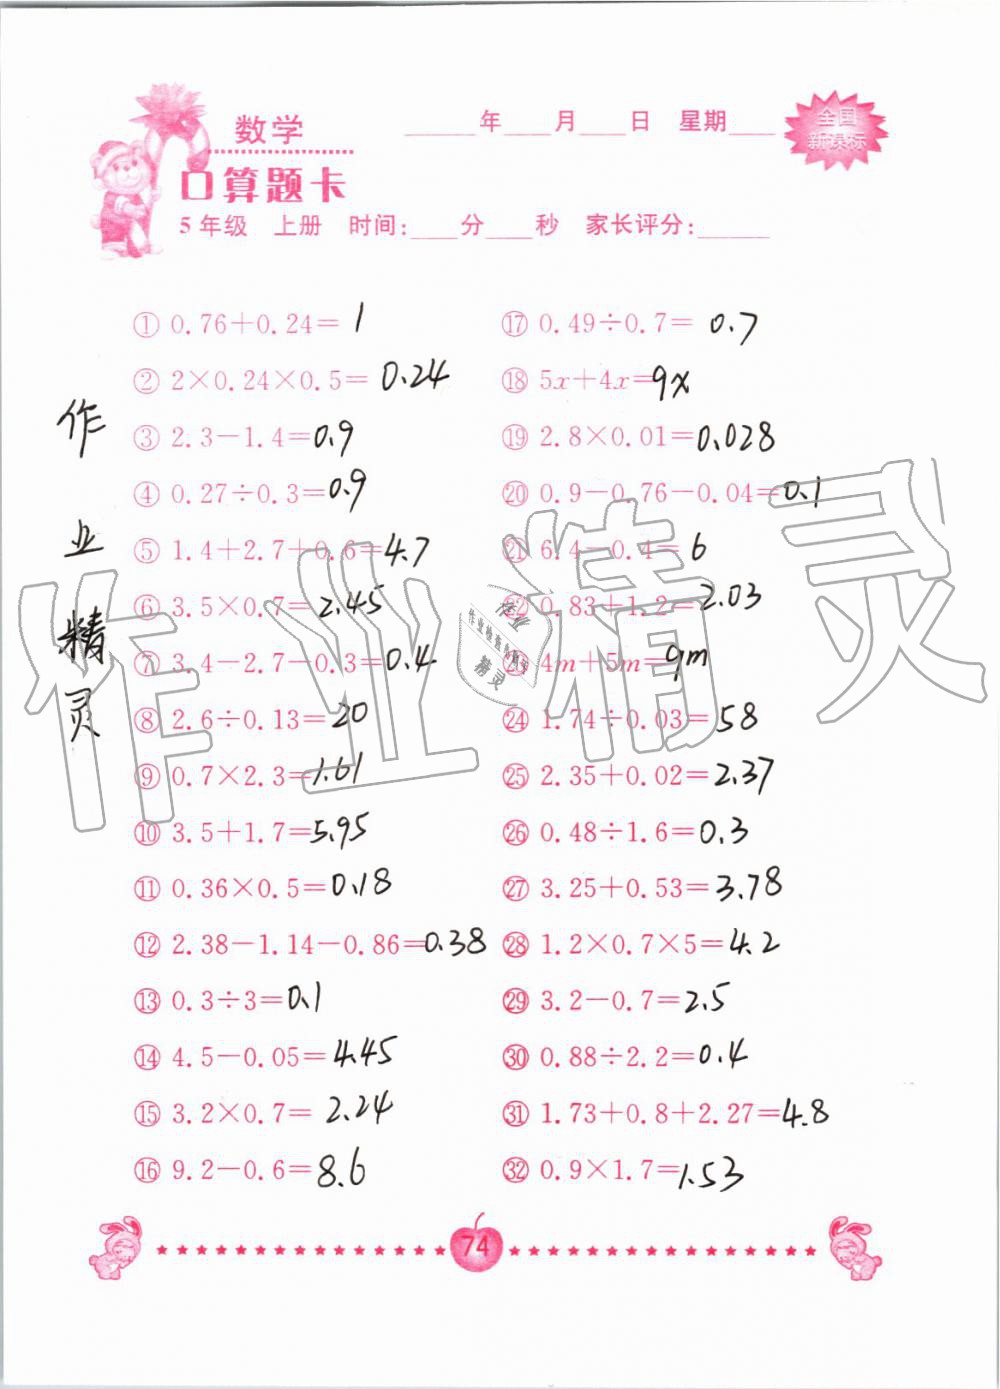 数学
____年____月____日 星期____
全国
新课标
口算题卡
5年级 上册 时间:____分____秒 家长评分:______
① 0.76+0.24=1
② 2×0.24×0.5=0.24
③ 2.3-1.4=0.9
④ 0.27÷0.3=0.9
⑤ 1.4+2.7+0.6=4.7
⑥ 3.5×0.7=2.45
⑦ 3.4-2.7-0.3=0.4
⑧ 2.6÷0.13=20
⑨ 0.7×2.3=1.61
⑩ 3.5+1.7=5.95
⑪ 0.36×0.5=0.18
⑫ 2.38-1.14-0.86=0.38
⑬ 0.3÷3=0.1
⑭ 4.5-0.05=4.45
⑮ 3.2×0.7=2.24
⑯ 9.2-0.6=8.6
⑰ 0.49÷0.7=0.7
⑱ 5x+4x=9x
⑲ 2.8×0.01=0.028
⑳ 0.9-0.76-0.04=0.1
㉑ 6.4-0.4=6
㉒ 0.83+1.2=2.03
㉓ 4m+5m=9m
㉔ 1.74÷0.03=58
㉕ 2.35+0.02=2.37
㉖ 0.48÷1.6=0.3
㉗ 3.25+0.53=3.78
㉘ 1.2×0.7×5=4.2
㉙ 3.2-0.7=2.5
㉚ 0.88÷2.2=0.4
㉛ 1.73+0.8+2.27=4.8
㉜ 0.9×1.7=1.53
作业精灵
作业精灵
作业
精灵
74